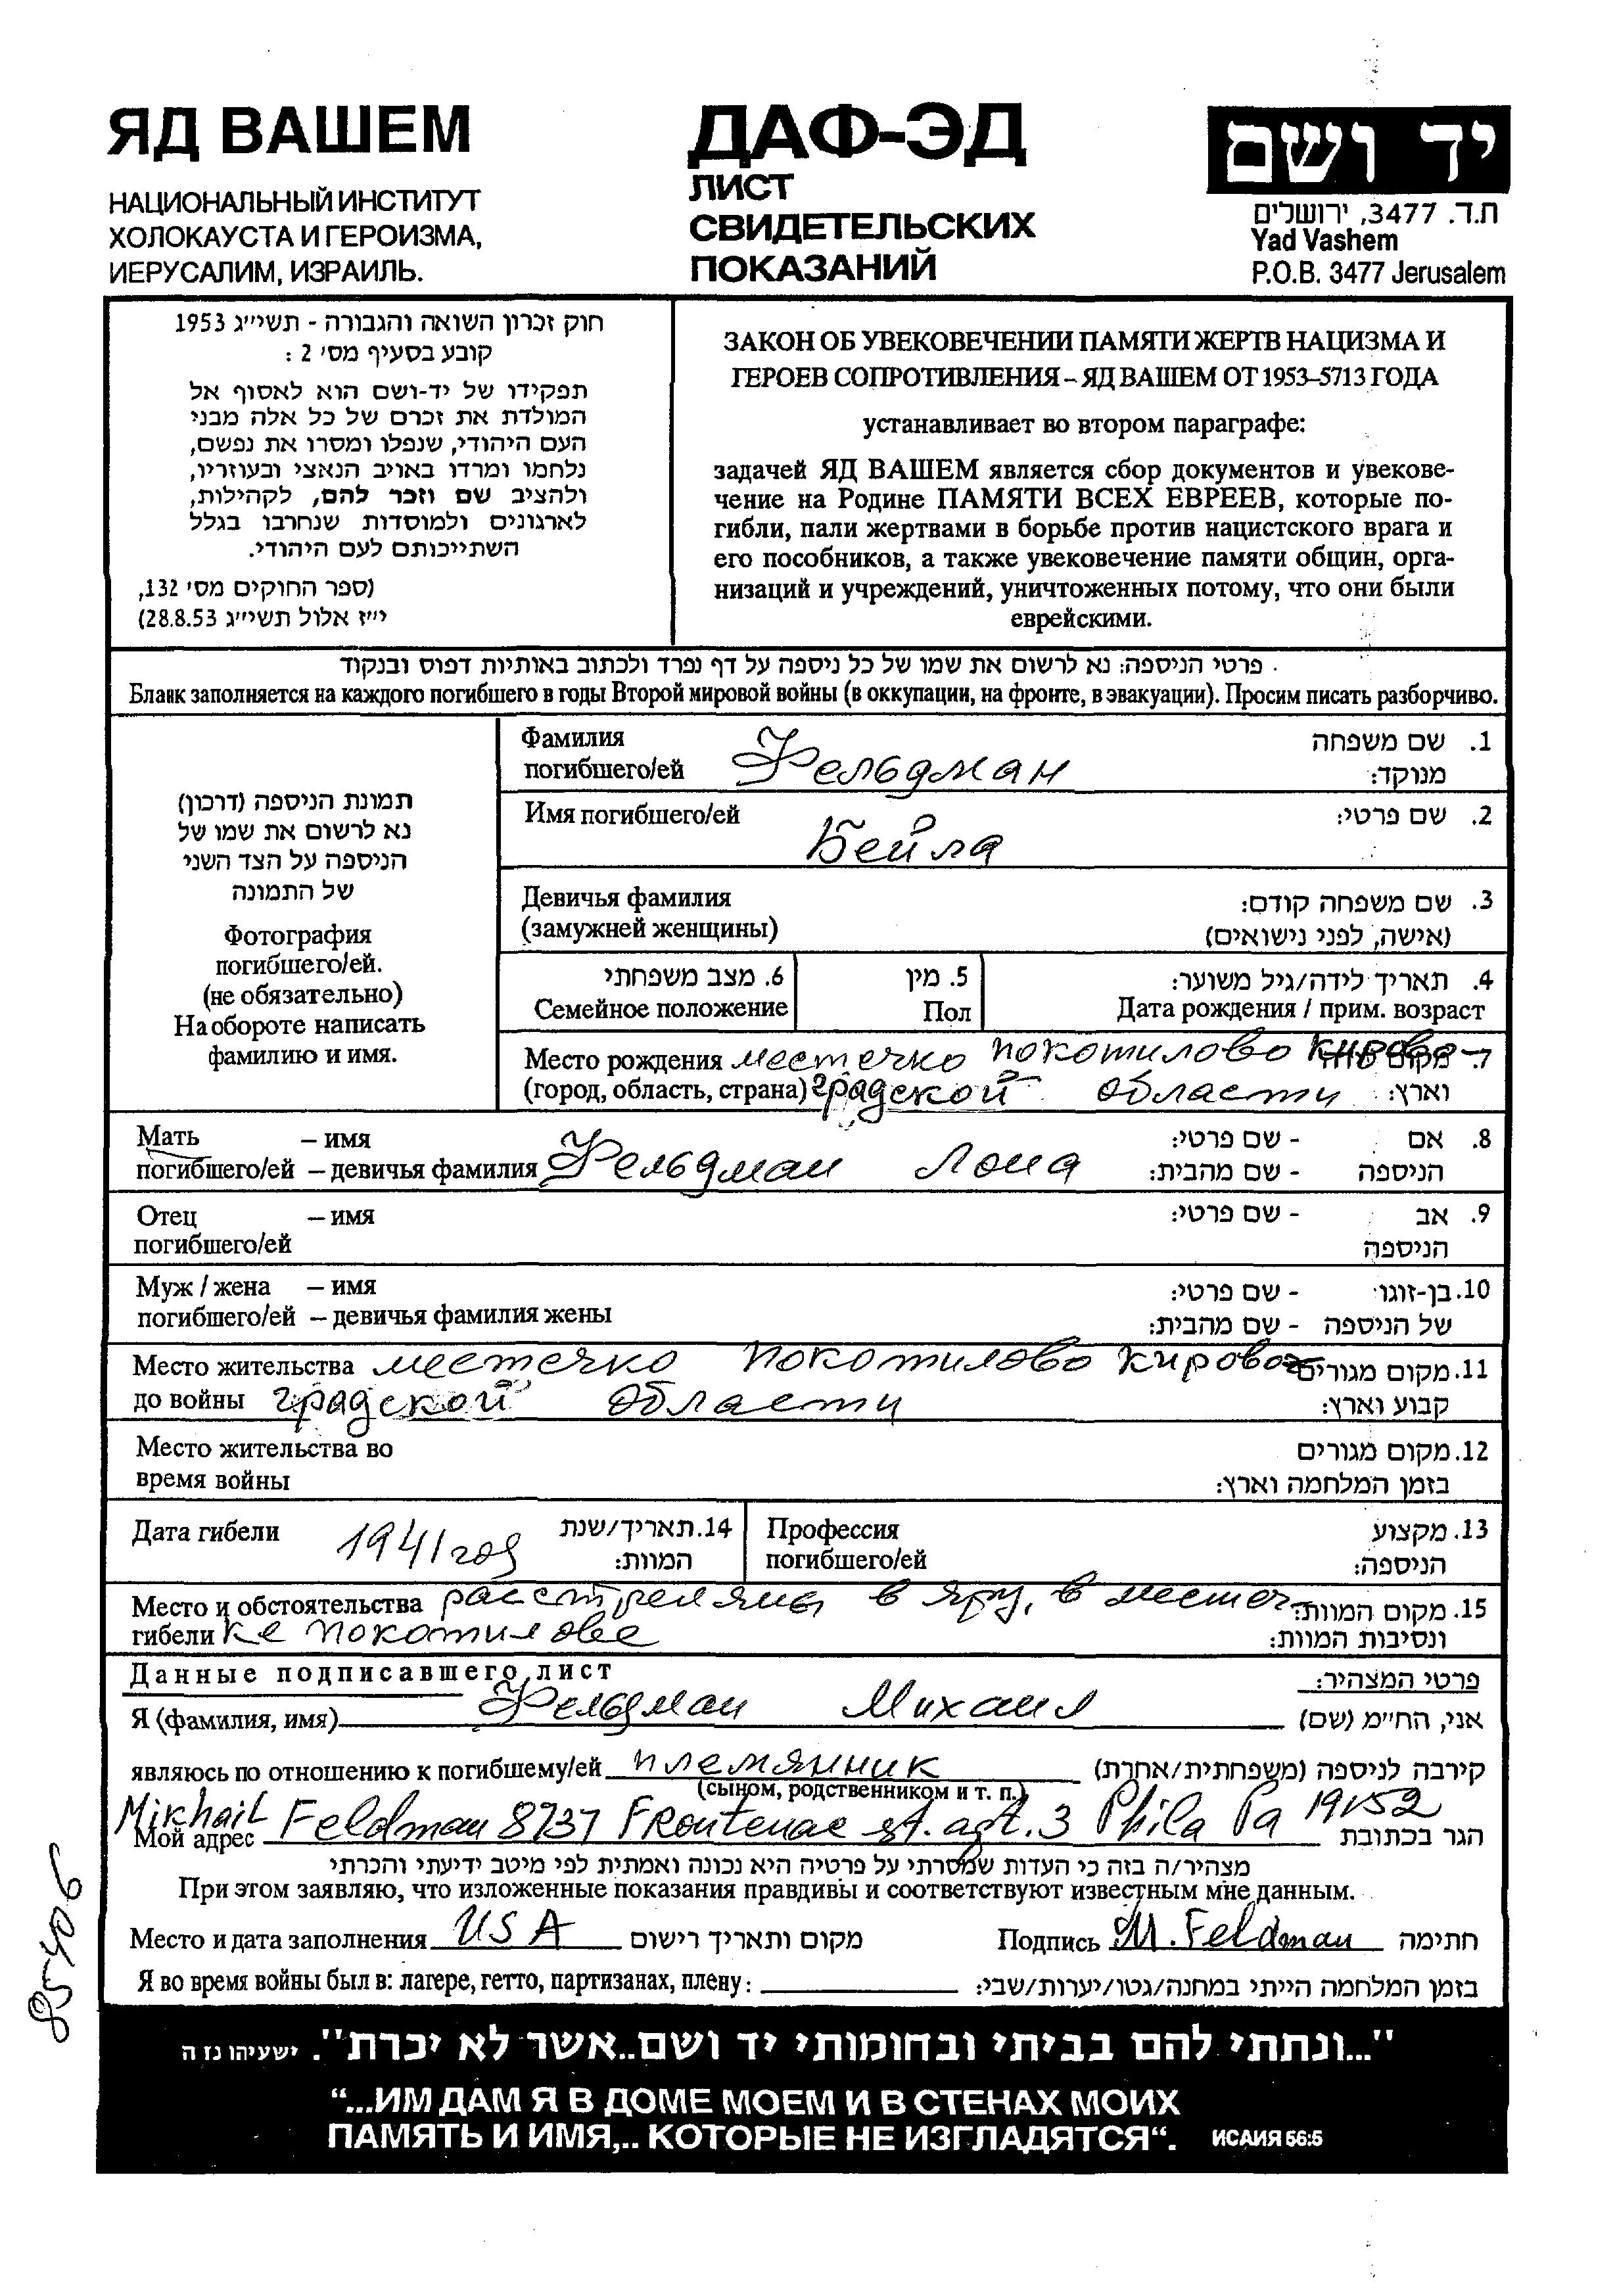 ЯД ВАШЕМ
НАЦИОНАЛЬНЫЙ ИНСТИТУТ
ХОЛОКАУСТА И ГЕРОИЗМА,
ИЕРУСАЛИМ, ИЗРАИЛЬ.
ДАФ-ЭД
ЛИСТ
СВИДЕТЕЛЬСКИХ
ПОКАЗАНИЙ
יד ושם
ת.ד. 3477, ירושלים
Yad Vashem
P.O.B. 3477 Jerusalem
חוק זכרון השואה והגבורה - תשי״ג 1953
קובע בסעיף מס׳ 2 :
תפקידו של יד-ושם הוא לאסוף אל
המולדת את זכרם של כל אלה מבני
העם היהודי, שנפלו ומסרו את נפשם,
נלחמו ומרדו באויב הנאצי ובעוזריו,
ולהציב שם וזכר להם, לקהילות,
לארגונים ולמוסדות שנחרבו בגלל
השתייכותם לעם היהודי.
(ספר החוקים מס׳ 132,
י״ז אלול תשי״ג 28.8.53)
ЗАКОН ОБ УВЕКОВЕЧЕНИИ ПАМЯТИ ЖЕРТВ НАЦИЗМА И
ГЕРОЕВ СОПРОТИВЛЕНИЯ – ЯД ВАШЕМ ОТ 1953–5713 ГОДА
устанавливает во втором параграфе:
задачей ЯД ВАШЕМ является сбор документов и увекове-
чение на Родине ПАМЯТИ ВСЕХ ЕВРЕЕВ, которые по-
гибли, пали жертвами в борьбе против нацистского врага и
его пособников, а также увековечение памяти общин, орга-
низаций и учреждений, уничтоженных потому, что они были
еврейскими.
פרטי הניספה: נא לרשום את שמו של כל ניספה על דף נפרד ולכתוב באותיות דפוס ובנקוד
Бланк заполняется на каждого погибшего в годы Второй мировой войны (в оккупации, на фронте, в эвакуации). Просим писать разборчиво.
תמונת הניספה (דרכון)
נא לרשום את שמו של
הניספה על הצד השני
של התמונה
Фотография
погибшего/ей.
(не обязательно)
На обороте написать
фамилию и имя.
Фамилия 1. שם משפחה
погибшего/ей Фельдман מנוקד:
Имя погибшего/ей 2. שם פרטי:
Бейла
Девичья фамилия 3. שם משפחה קודם:
(замужней женщины) (אישה, לפני נישואים)
6. מצב משפחתי 5. מין 4. תאריך לידה/גיל משוער:
Семейное положение Пол Дата рождения / прим. возраст
Место рождения местечко Покотилово Кирово- 7.
(город, область, страна) градской области וארץ:
Мать – имя - שם פרטי: 8. אם
погибшего/ей – девичья фамилия Фельдман Лона - שם מהבית: הניספה
Отец – имя - שם פרטי: 9. אב
погибшего/ей הניספה
Муж / жена – имя - שם פרטי: 10. בן-זוגו
погибшего/ей – девичья фамилия жены - שם מהבית: של הניספה
Место жительства местечко Покотилово Кирово- 11. מקום מגורים
до войны градской области קבוע וארץ:
Место жительства во 12. מקום מגורים
время войны בזמן המלחמה וארץ:
Дата гибели 1941 год 14. תאריך/שנת המוות:
Профессия 13. מקצוע
погибшего/ей הניספה:
Место и обстоятельства расстреляны в яру, в местеч- 15. מקום המוות:
гибели ке Покотилове ונסיבות המוות:
Данные подписавшего лист פרטי המצהיר:
Я (фамилия, имя) Фельдман Михаил אני, הח״מ (שם)
являюсь по отношению к погибшему/ей племянник קירבה לניספה (משפחתית/אחרת)
(сыном, родственником и т. п.)
Мой адрес Mikhail Feldman 8737 Frontenac st. apt. 3 Phila Pa 19152 הגר בכתובת
מצהיר/ה בזה כי העדות שמסרתי על פרטיה היא נכונה ואמתית לפי מיטב ידיעתי והכרתי
При этом заявляю, что изложенные показания правдивы и соответствуют известным мне данным.
Место и дата заполнения USA מקום ותאריך רישום Подпись M. Feldman חתימה
Я во время войны был в: лагере, гетто, партизанах, плену: בזמן המלחמה הייתי במחנה/גטו/יערות/שבי:
"...ונתתי להם בביתי ובחומותי יד ושם..אשר לא יכרת". ישעיהו נז ה
“...ИМ ДАМ Я В ДОМЕ МОЕМ И В СТЕНАХ МОИХ
ПАМЯТЬ И ИМЯ,.. КОТОРЫЕ НЕ ИЗГЛАДЯТСЯ“. ИСАИЯ 56:5